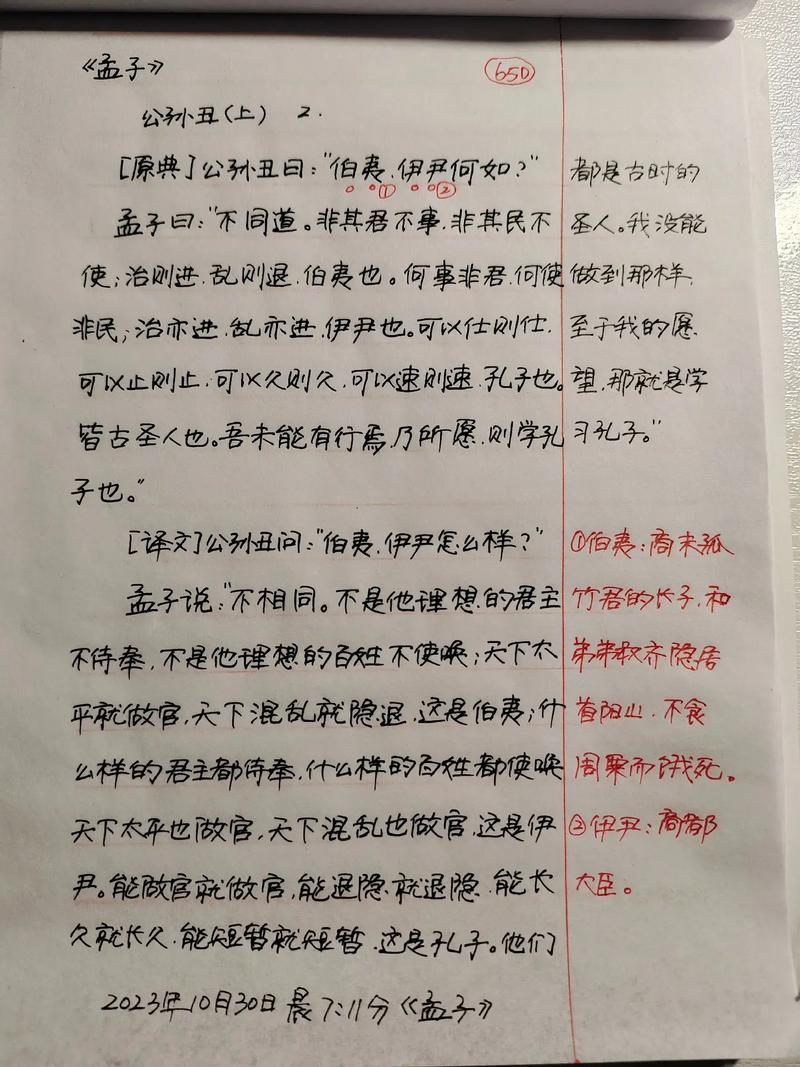 《孟子》
650
公孙丑(上) 2.
[原典]公孙丑曰:"伯夷、伊尹何如?"
① ②
孟子曰:"不同道。非其君不事,非其民不
使;治则进,乱则退,伯夷也。何事非君,何使
非民;治亦进,乱亦进,伊尹也。可以仕则仕,
可以止则止,可以久则久,可以速则速,孔子也。
皆古圣人也。吾未能有行焉,乃所愿,则学孔
子也。"
[译文]公孙丑问:"伯夷、伊尹怎么样?"
孟子说:"不相同。不是他理想的君主
不侍奉,不是他理想的百姓不使唤;天下太
平就做官,天下混乱就隐退,这是伯夷;什
么样的君主都侍奉,什么样的百姓都使唤
天下太平也做官,天下混乱也做官,这是伊
尹。能做官就做官,能退隐就退隐,能长
久就长久,能短暂就短暂,这是孔子。他们
都是古时的
圣人。我没能
做到那样,
至于我的愿
望,那就是学
习孔子。"
①伯夷:商末孤
竹君的长子,和
弟弟叔齐隐居
首阳山,不食
周粟而饿死。
②伊尹:商部
大臣。
2023年10月30日晨7:11分《孟子》